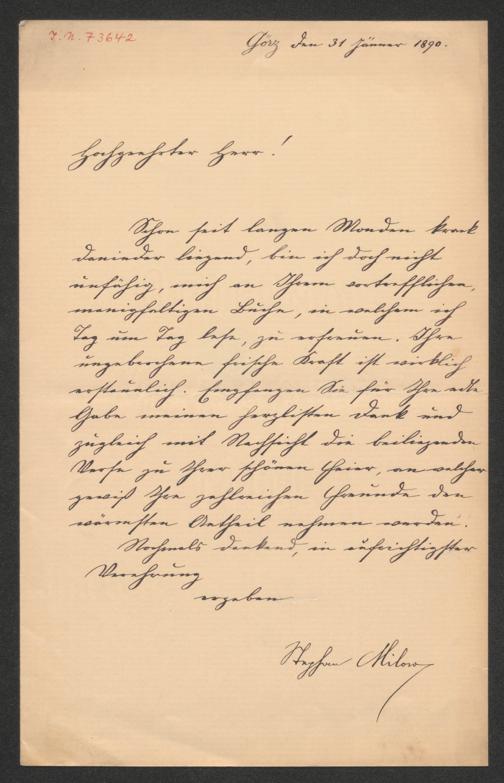 J.N. 73642
Görz den 31 Jänner 1890.
Hochgeehrter Herr!
Schon seit langen Monden krank
danieder liegend, bin ich doch nicht
unfähig, mich an Ihrem vortrefflichen,
manigfaltigen Buche, in welchem ich
Tag um Tag lese, zu erfreuen. Ihre
ungebrochene frische Kraft ist wirklich
erstaunlich. Empfangen Sie für Ihre edle
Gabe meinen herzlichsten Dank und
zugleich mit Nachsicht die beiliegenden
Verse zu Ihrer schönen Feier, an welcher
gewiß Ihre zahlreichen Freunde den
wärmsten Antheil nehmen werden.
Nochmals dankend, in aufrichtigster
Verehrung
ergeben
Stephan Milow